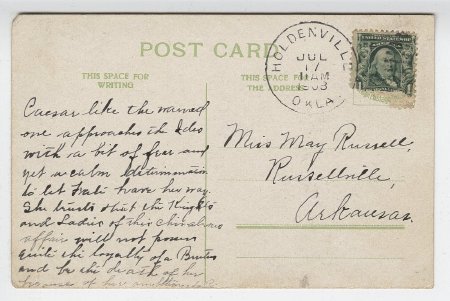 POST CARD
THIS SPACE FOR
WRITING
THIS SPACE FOR
THE ADDRESS
HOLDENVILLE
JUL
17
11AM
1908
OKLA.
Caesar like the warned
one approaches the Ides
with a bit of fear and
yet a calm determination
to let Fate have her way.
She trusts that the Knights
and Ladies of this chivalrous
affair will not possess
quite the loyalty of a Brutus
and be the death of her
because of her ambitions?
Miss May Russell,
Russellville,
Arkansas.